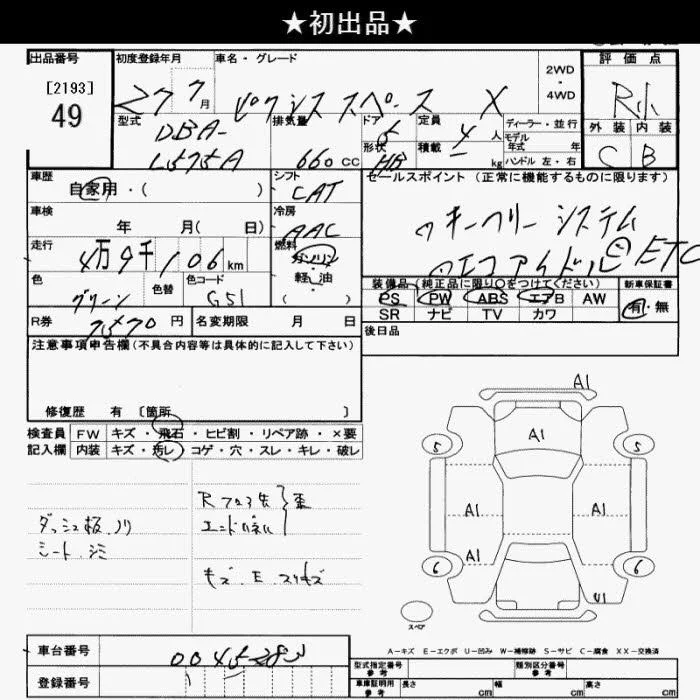 ★初出品★
出品番号
[2193]
49
初度登録年月
27 7月
車名・グレード
ピクシススペース X
2WD
・
4WD
評価点
R
外装 内装
C B
型式
DBA-
L575A
排気量
660 cc
ドア
5
形状
HB
定員
4人
積載
kg
ディーラー・並行
モデル
年式 年
ハンドル 左・右
車歴
自家用・( )
シフト
CAT
セールスポイント (正常に機能するものに限ります)
キーフリーシステム
エコアイドル ETC
車検
年 月( 日)
冷房
AAC
走行
4万9千106km
燃料
ガソリン
・
軽油
・
( )
色
グリーン
色替
色コード
G51
装備品(純正品に限り○をつけてください)
PS PW ABS エアB AW
SR ナビ TV カワ
新車保証書
有・無
R券
7570円
名変期限 月 日
後日品
注意事項申告欄(不具合内容等は具体的に記入して下さい)
修復歴 有 [箇所 ]
検査員
記入欄
FW キズ・飛石・ヒビ割・リペア跡・×要
内装 キズ・汚レ・コゲ・穴・スレ・キレ・破レ
ダッシュ板ノリ
シートシミ
キズ.E.スリキズ
A1
A1
5
5
A1
A1
A1
6
6
スペア
A-キズ E-エクボ U-凹み W-補修跡 S-サビ C-腐食 XX-交換済
車台番号
登録番号
型式指定番号
参考
類別区分番号
参考
車庫証明用
参考
長さ cm
幅 cm
高さ cm